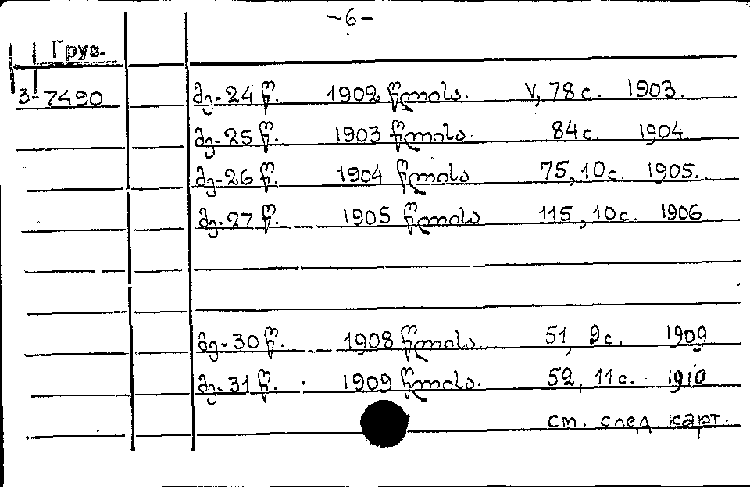 -6-
Груз.
3-7490
მე-24 წ. 1902 წლისა. V, 78 с. 1903.
მე-25 წ. 1903 წლისა. 84 с 1904
მე-26 წ. 1904 წლისა 75, 10 с. 1905.
მე-27 წ. 1905 წლისა 115, 10 с. 1906
მე-30 წ. 1908 წლისა 51, 2 с. 1909
მე-31 წ. 1909 წლისა. 52, 11 с. 1910
см. след карт.